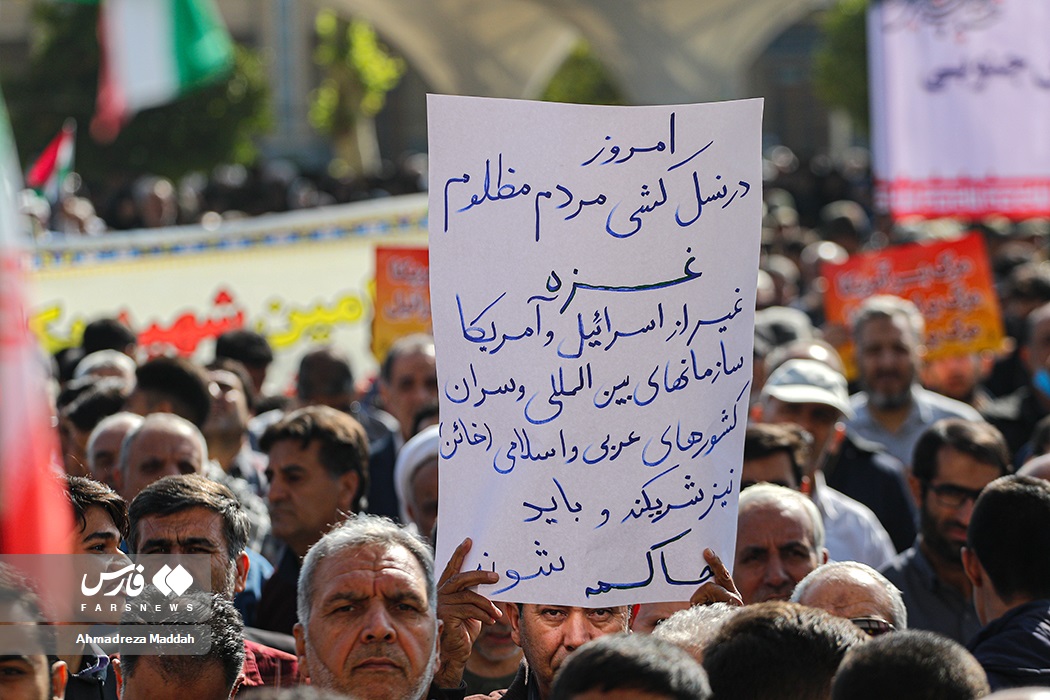 امروز
درنسل کشی مردم مظلوم
غزه
غیر از اسرائیل و آمریکا
سازمانهای بین المللی وسران
کشورهای عربی و اسلامی (خائن)
نیز شریکند و باید
حاکمه شوند
جنوبی
مین شهید
مرگ بر آمریکا
فارس
FARSNEWS
Ahmadreza Maddah